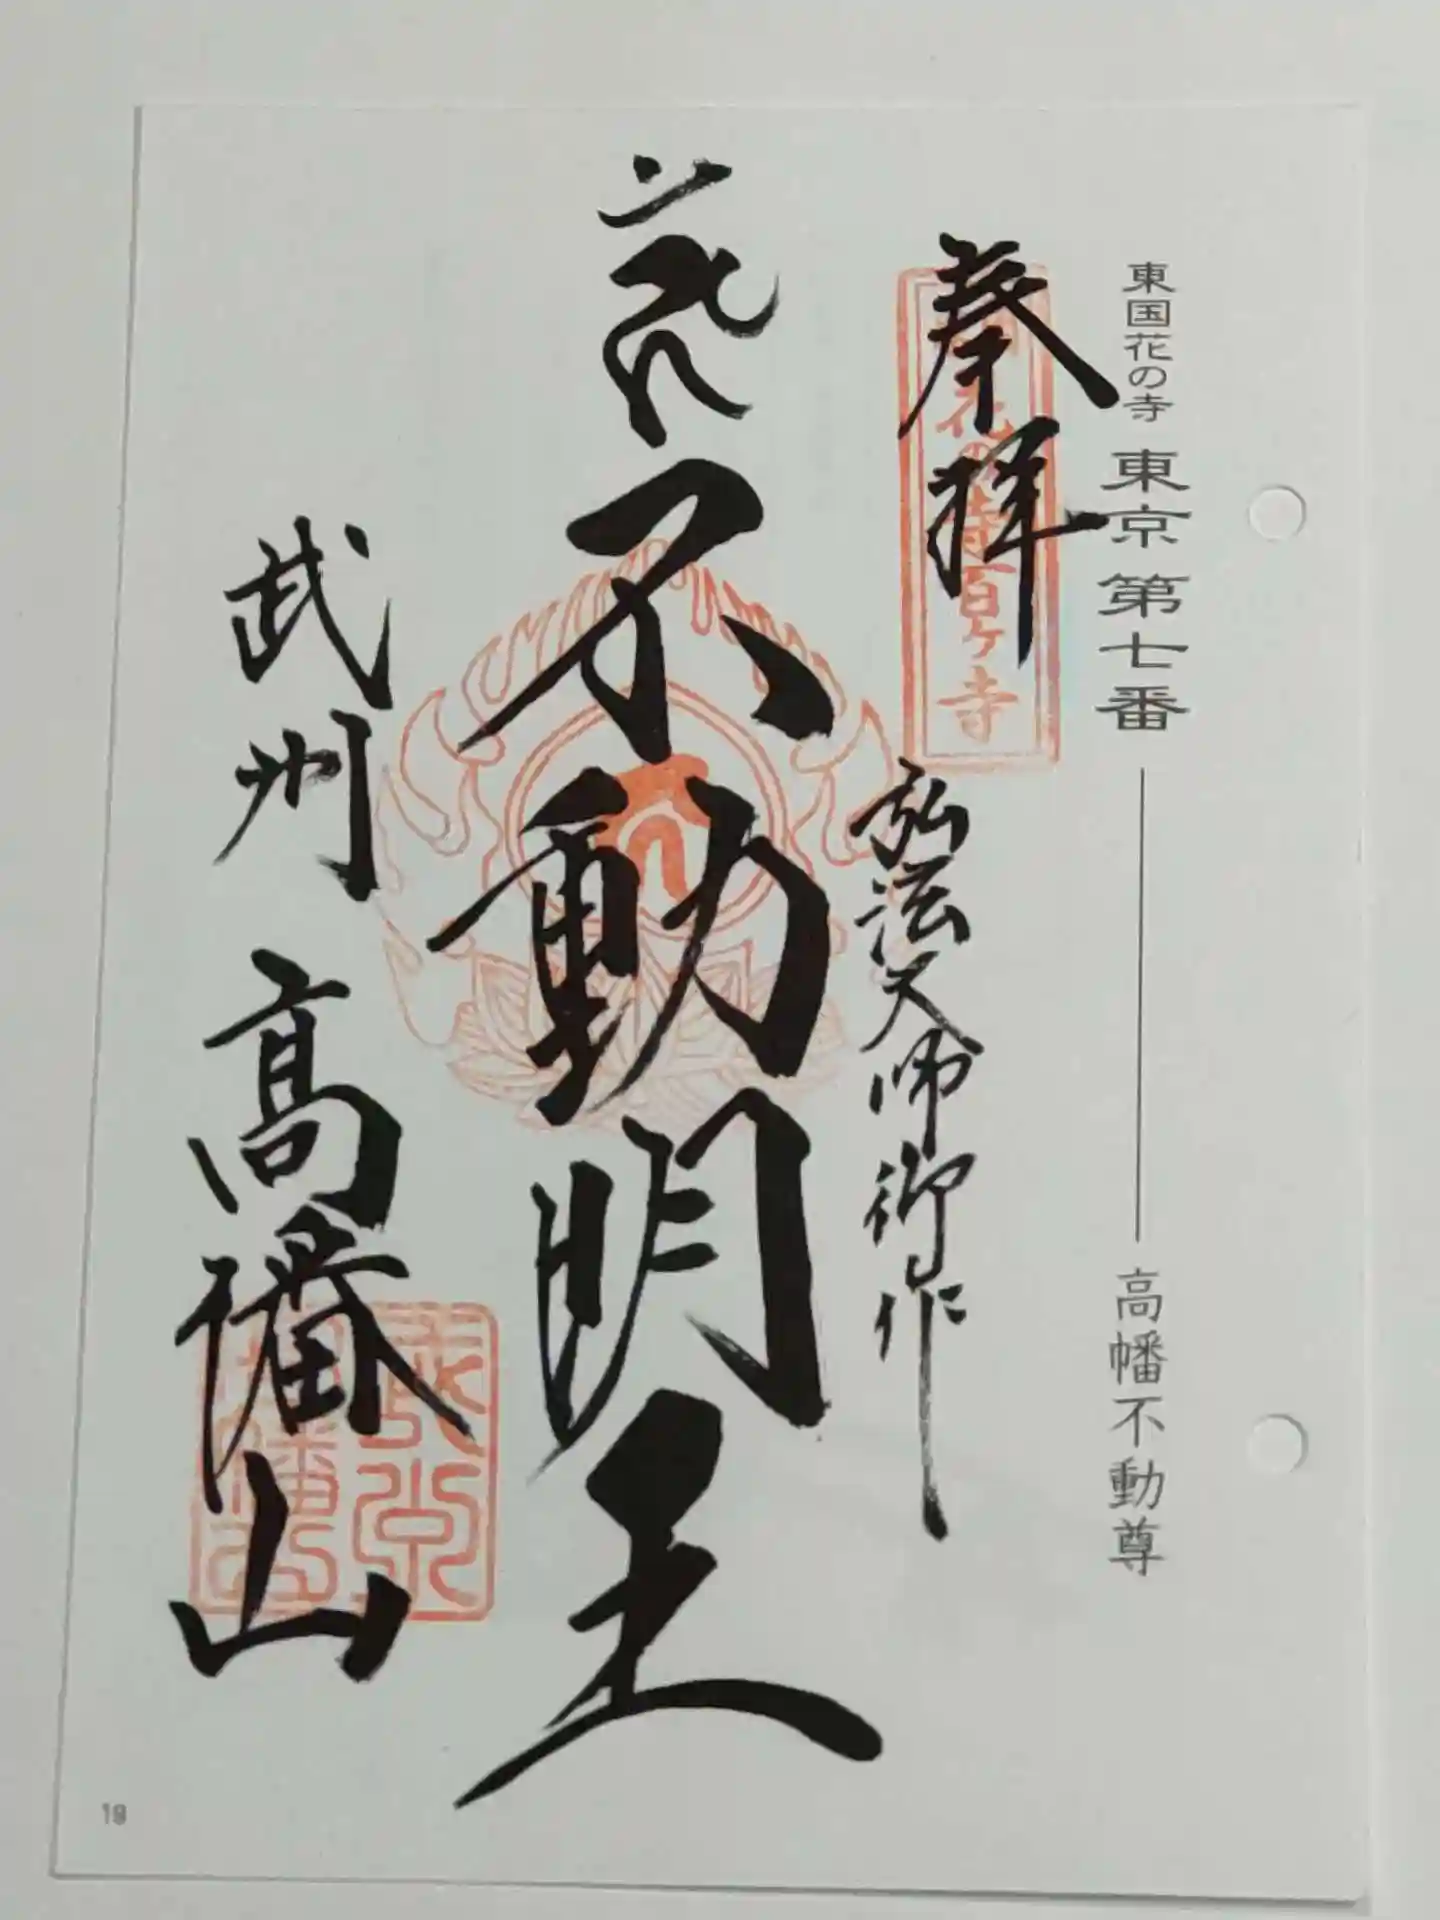 東国花の寺 東京 第七番 高幡不動尊
奉拝
花の寺百ヶ寺
弘法大師御作
不動明王
武州 高幡山
19